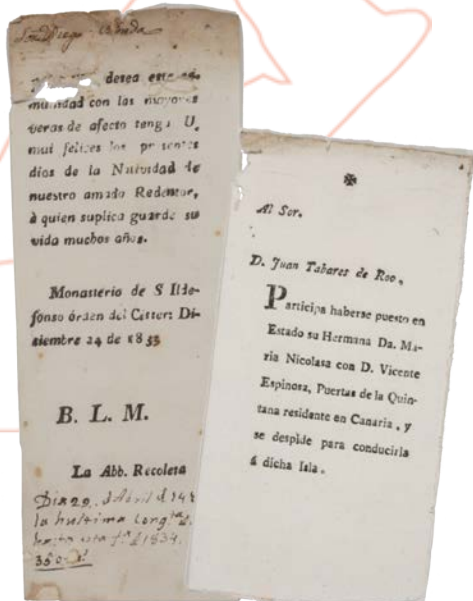 desea esta
munidad con las mayores
veras de afecto tenga U.
mui felices los presentes
dias de la Natividad de
nuestro amado Redentor,
à quien suplica guarde su
vida muchos años.
Monasterio de S Ilde-
fonso órden del Cister: Di-
ciembre 24 de 1833
B. L. M.
La Abb. Recoleta
Dia 29
la
1834.
350
Al Sor.
D. Juan Tabares de Roo,
Participa haberse puesto en
Estado su Hermana Da. Ma-
ria Nicolasa con D. Vicente
Espinosa, Puertas de la Quin-
tana residente en Canaria, y
se despide para conducirla
á dicha Isla.